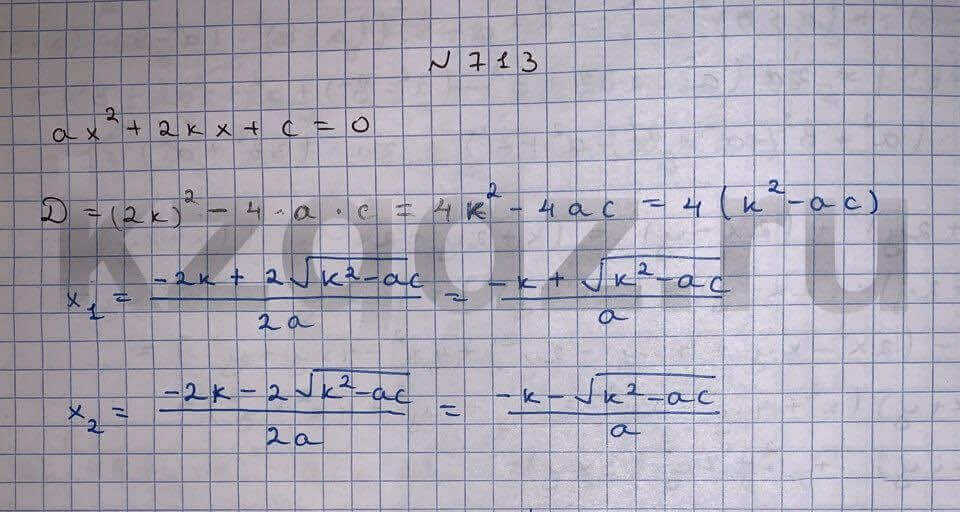 N 713
ax² + 2kx + c = 0
D = (2k)² - 4 · a · c = 4k² - 4ac = 4(k² - ac)
x₁ = (-2k + 2√(k² - ac))/(2a) = (-k + √(k² - ac))/a
x₂ = (-2k - 2√(k² - ac))/(2a) = (-k - √(k² - ac))/a
kzgdz.ru